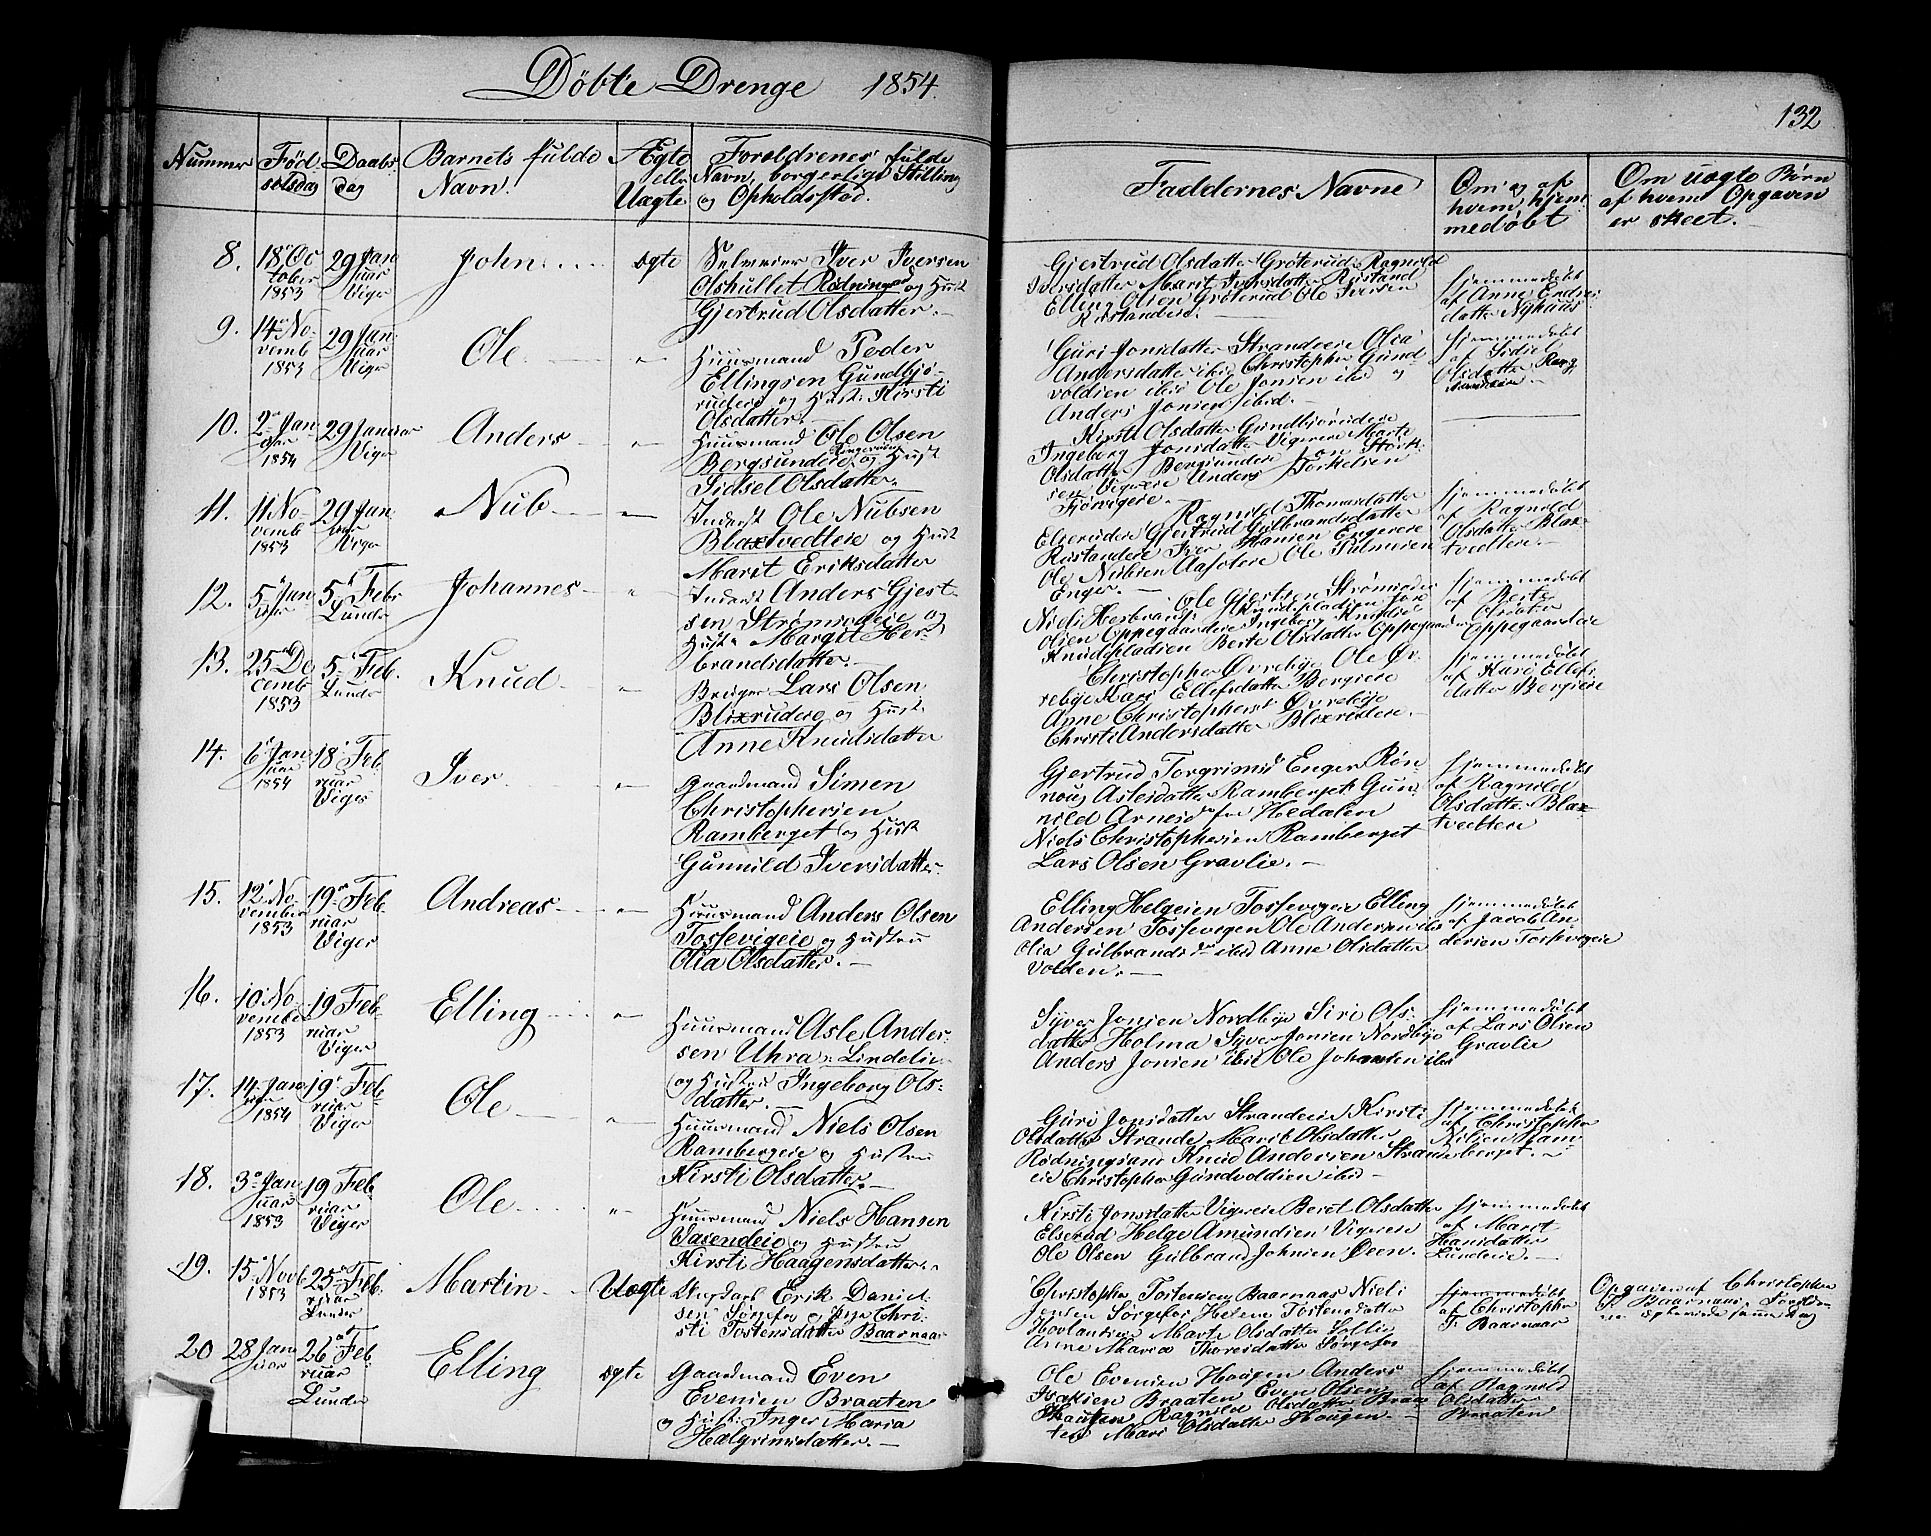 Døbte Drenge 1854.
132
Nummer
Fød
selsdag
Daabs
dag
Barnets fulde
Navn.
Ægte
eller
Uægte
Forældrenes fulde
Navn, borgerlige Stilling
og Opholdssted.
Faddernes Navne
Om og af
hvem hjem
medøbt
Om uægte Børn
af hvem Opgaven
er skeet.
8.
18 Oc
tober
1853
29 Jan
uar
Viger
John
ægte
Selveier Iver Iversen
Olshullet Rødningsand og Hust
Gjertrud Olsdatter.
Gjertrud Olsdatter Grøterud Ragnild
Iversdatter Marit Iversdatter Rustand
Elling Olsen Grøterud Ole Iversen
Rustandeie.
hjemmedøbt
af Anne Endres
datter Nyhuus
9.
14 No
vemb
1853
29 Jan
uar
Viger
Ole
"
Huusmand Peder
Ellingsen Gundbjø-
rudeie og Hust. Kirsti
Olsdatter.
Guri Jonsdatter Strandeie Olia
Andersdatter ibid Christopher Gund
voldsen ibid Ole Jonsen ibid og
Anders Jonsen ibid.
hjemmedøbt
af Sidsel
Olsdatter
10.
2 Jan
uar
1854
29 Januar
Viger
Anders
"
Huusmand Ole Olsen
Bergsundeie og Hust
Sidsel Olsdatter.
Kirsti Olsdatter Gundbjørudeie
Ingeborg Jonsdatter Vigereie Marte
Olsdatter Bergsundeie Jon Stork
sen Vigereie Anders Torkelsen
11.
11 No
vemb
1853
29 Jan
uar
Viger
Nub
"
Inderst Ole Nubsen
Blaxtvedteie og Hust
Marit Eriksdatter
Ragnild Thomasdatter
Elserudeie Gjertrud Gulbrandsdatter
Rustandeie Iver Hansen Engereie
Ole Nubsen Aasoleie Ole Pulmesen
Enger.
hjemmedøbt
af Ragnild
Olsdatter Blax
tvedteie.
12.
5 Jan
uar
5 Febr
Lunder
Johannes
"
Inderst Anders Gjert
sen Strømsødeie og
Hust. Margit Her
brandsdatter.
Ole Gjertsen Strømsødeie
Niels Herbrands. Knudspladsen Jore
Olsen Oppegaardeie Ingeborg Knudsd
Knudspladsen Berte Olsdatter Oppegaardeie
hjemmedøbt
af Berte
Olsdatter
Oppegaardeie
13.
25 De
cemb
1853
5 Feb.
Lunder
Knud
"
Bruger Lars Olsen
Blixrudeie og Hust
Anne Knudsdatter
Christopher Øvrebye Ole Øv-
rebye Kari Ellefsdatter Bergseie
Anne Christophersd Øvrebye
Christi Andersdatter Blixrudeie.
hjemmedøbt
af Kari Ellefs
datter Bergseie
14.
6 Jan
uar
1854
18 Feb
ruar
Viger
Iver
"
Gaardmand Simen
Christophersen
Ramberget og Hust
Gunnild Iversdatter
Gjertrud Torgrimsd Enger Røn-
noug Aslesdatter Ramberget Gun
nild Arnesd fra Hedalen
Niels Christophersen Ramberget
Lars Olsen Gravlie.
hjemmedøbt
af Ragnild
Olsdatter Blax
tvedteie
15.
12 No
vember
1853
19 Feb
ruar
Viger
Andreas
"
Huusmand Anders Olsen
Tosfevigeie og Hustru
Olia Olsdatter.
Elling Helgesen Tosfevigeie Elling
Andersen Tosfevigen Ole Andersen ibid
Olia Gulbrandsd ibid Anne Olsdatter
Volden.
hjemmedøbt
af Jacob An
dersen Tosfevigeie
16.
10 No
vember
1853
19 Feb
ruar
Viger
Elling
"
Huusmand Asle Ander
sen Uhra Lindelie
og Hustru Ingeborg Ols
datter.
Syver Jonsen Nordbye Siri Ols-
datter Holma Syver Jonsen Nordbye
Anders Jonsen ibid Ole Johannesen ibid
hjemmedøbt
af Lars Olsen
Gravlie
17.
14 Jan
uar
1854
19 Feb
ruar
Viger
Ole
"
Huusmand Niels Olsen
Rambergeie og Hustru
Kirsti Olsdatter.
Guri Jonsdatter Strandeie Kirsti
Olsdatter Strande Marit Olsdatter
Rødningsand Knud Andersen Strand
eie Christopher Gundvoldsen ibid
hjemmedøbt
af Christopher
Nilsen Ram
berget.
18.
3 Jan
uar
1853
19 Feb
ruar
Viger
Ole
"
Huusmand Niels Hansen
Vasendeie og Hustru
Kirsti Haagensdatter.
Kirsti Jonsdatter Vigereie Beret Olsdatter
Elserud Helge Amundsen Vigereie
Ole Olsen Gulbrand Johnsen Øeen.
hjemmedøbt
af Marit
Hansdatter
Lundeie.
19.
15 Novb
1853
25 Feb
ruar
Lunder
Martin
Uægte
Ungkarl Erik Daniel
sen Sørgefos og Pige Chri
sti Tostensdatter Baarnaas
Christopher Tostensen Baarnaas Niels
Jensen Sørgefos Helene Tostensdatter
Hovlandsen Marte Olsdatter Sollie
Anne Maria Thoresdatter Sørgefos
hjemmedøbt
af Christopher
T. Baarnaas
Opgaven af Christopher
T. Baarnaas
20
28 Jan
uar
26 Feb
ruar
Lunder
Elling
ægte
Gaardmand Even
Evensen Braaten
og Hust. Inger Maria
Halgrimsdatter.
Ole Evensen Haugen Anders
Isaksen Braaten Even Olsen
Haugen Ragnild Olsdatter Braa
ten Mari Olsdatter Haugen.
hjemmedøbt
af Ragnild
Olsdatter
Braaten